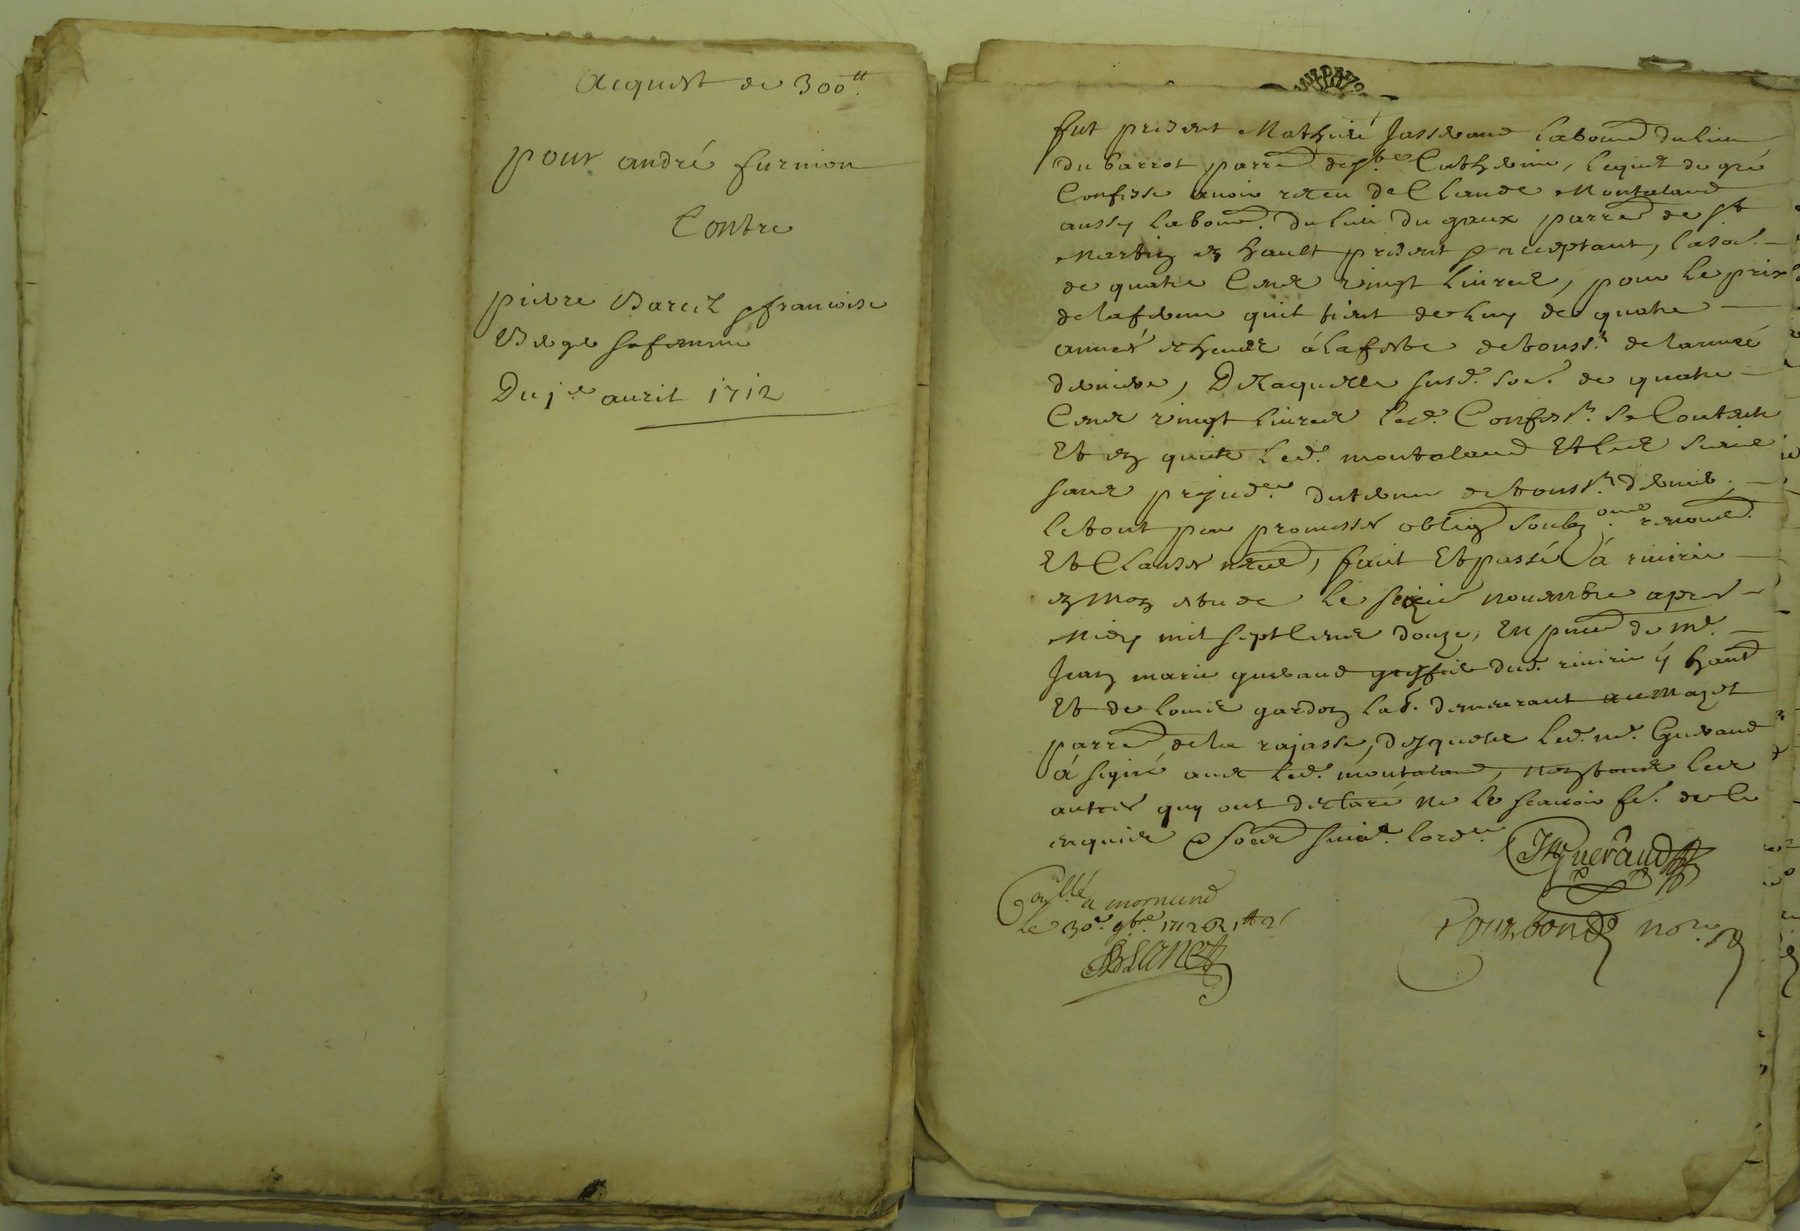 Acquist de 300ᵗᵗ.
pour andré furnion
Contre
pierre Barcil & francoise
Verge sa femme
Du 1ᵉʳ auril 1712
fut present Mathieu Jasseraud labour. du lieu
du barrot parre. de Ste Catherine, lequel de gré
Confesse auoir receu de Claude Montaland
aussy labour. du lieu du gaux parre. de St
Martin en hault present & acceptant, la so.
de quatre Cens vingt liures, pour le prix
de la ferme quil tient de luy de quatre
années escheues a la feste de touss.ts de lannée
derniere, De laquelle susd. so. de quatre
Cens vingt liures led. Confess.t se Contente
Et en quitte led. montaland Et les siens
sans prejud.ce du terme de touss.ts dernie.
le tout par promesses oblig. soubz.ons renonc.
Et Clauses neces, fait Et passé à riuirie
en mon estude le seizie nouembre apres
Midy mil sept Cens douze, En prnce de me.
Jean marie gueraud greffier dud. riuirie y habt
Et de Louis gardon lab. demeurant au mazel
parre. de la rajasse, desquels led. me. Gueraud
à signé auec led. montaland, non les
autres quy ont declaré ne le scauoir fe. de ce
enquis & som. suiut. lord.ce
JM Gueraud
Con.llé a mornand
le 30e. 9bre. 1712
Bourbon no.re